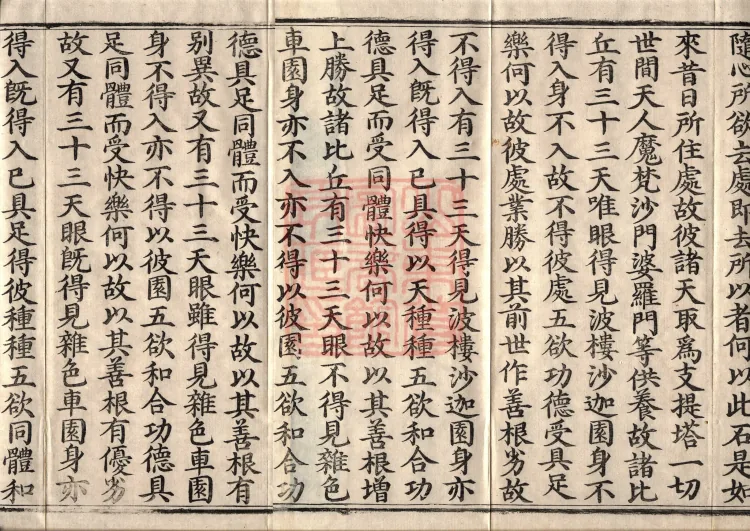 隨心所欲去處即去所以者何以此石是如
來昔日所住處故彼諸天取爲支提塔一切
世間天人魔梵沙門婆羅門等供養故諸比
丘有三十三天唯眼得見波樓沙迦園身不
得入身不入故不得彼處五欲功德受具足
樂何以故彼處業勝以其前世作善根劣故
不得入有三十三天得見波樓沙迦園身亦
得入旣得入已具得以天種種五欲和合功
德具足而受同體快樂何以故以其善根增
上勝故諸比丘有三十三天眼不得見雜色
車園身亦不入亦不得以彼園五欲和合功
德具足同體而受快樂何以故以其善根有
別異故又有三十三天眼雖得見雜色車園
身不得入亦不得以彼園五欲和合功德具
足同體而受快樂何以故以其善根有優劣
故又有三十三天眼旣得見雜色車園身亦
得入旣得入已具足得彼種種五欲同體和